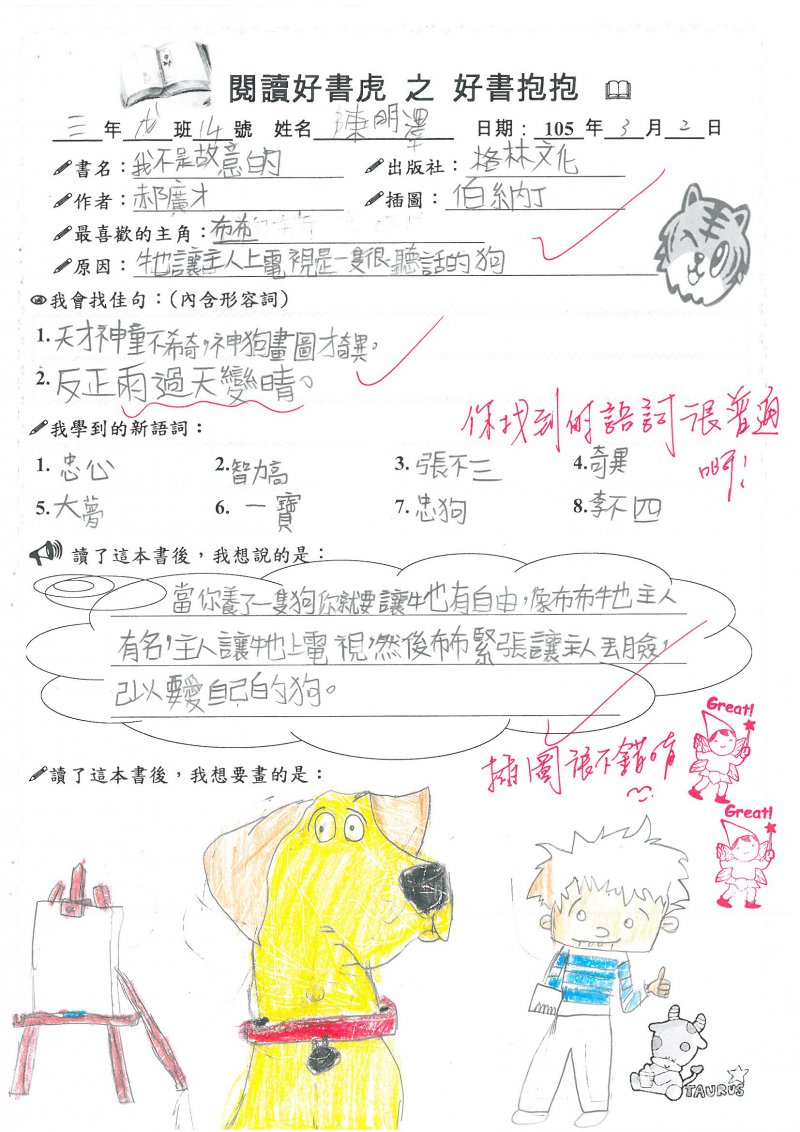 閱讀好書虎 之 好書抱抱
三年戊班14號 姓名 陳明澤 日期：105年3月2日
書名：我不是故意的 出版社：格林文化
作者：郝廣才 插圖：伯納丁
最喜歡的主角：布布
原因：牠讓主人上電視是一隻很聽話的狗
我會找佳句：(內含形容詞)
1.天才神童不希奇，神狗畫圖才奇異。
2.反正雨過天變晴。
你找到的語詞很普通
啊！
我學到的新語詞：
1.忠公 2.智力高 3.張不三 4.奇異
5.大夢 6.一寶 7.忠狗 8.李不四
讀了這本書後，我想說的是：
當你養了一隻狗你就要讓牠也有自由，像布布牠主人
有名，主人讓牠上電視，然後布布緊張讓主人丟臉，
已以要愛自己的狗。
Great!
讀了這本書後，我想要畫的是：
插圖很不錯唷
Great!
TAURUS